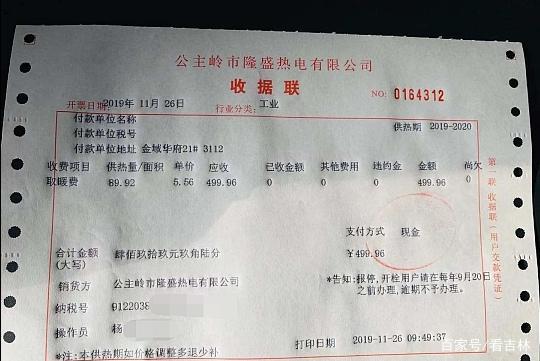 公主岭市隆盛热电有限公司
收据联
NO: 0164312
开票日期: 2019年 11月 26日 行业分类: 工业
付款单位名称
付款单位税号 供热期 2019-2020
付款单位地址 金域华府21# 3112
收费项目 供热量/面积 单价 应收 已收金额 其他费用 违约金 金额 尚欠
取暖费 89.92 5.56 499.96 0 0 0 499.96 0
支付方式 现金
合计金额 肆佰玖拾玖元玖角陆分 ¥499.96
(大写)
销货方 公主岭市隆盛热电有限公司
*告知: 报停,开栓用户请在每年9月20日
之前办理,逾期不予办理。
纳税号 9122038
操作员 杨
打印日期 2019-11-26 09:49:37
*注:本供热期如价格调整多退少补
第一联 收据联(用户交款凭证)
百家号/看吉林